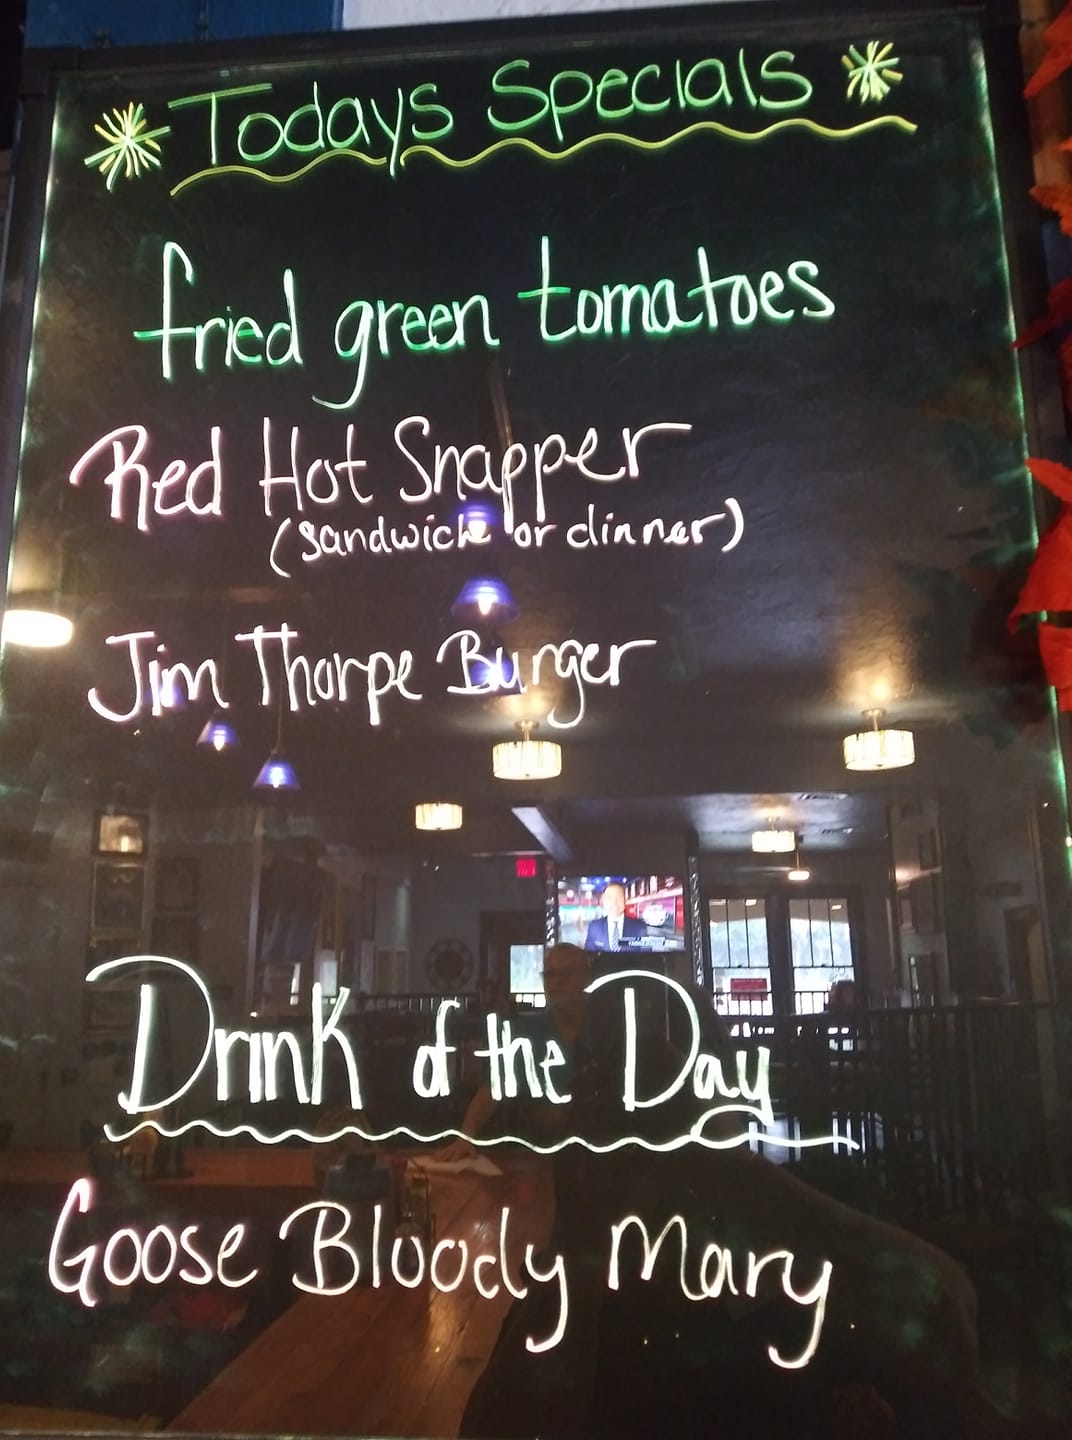 Todays Specials
fried green tomatoes
Red Hot Snapper
(sandwich or dinner)
Jim Thorpe Burger
Drink of the Day
Goose Bloody Mary